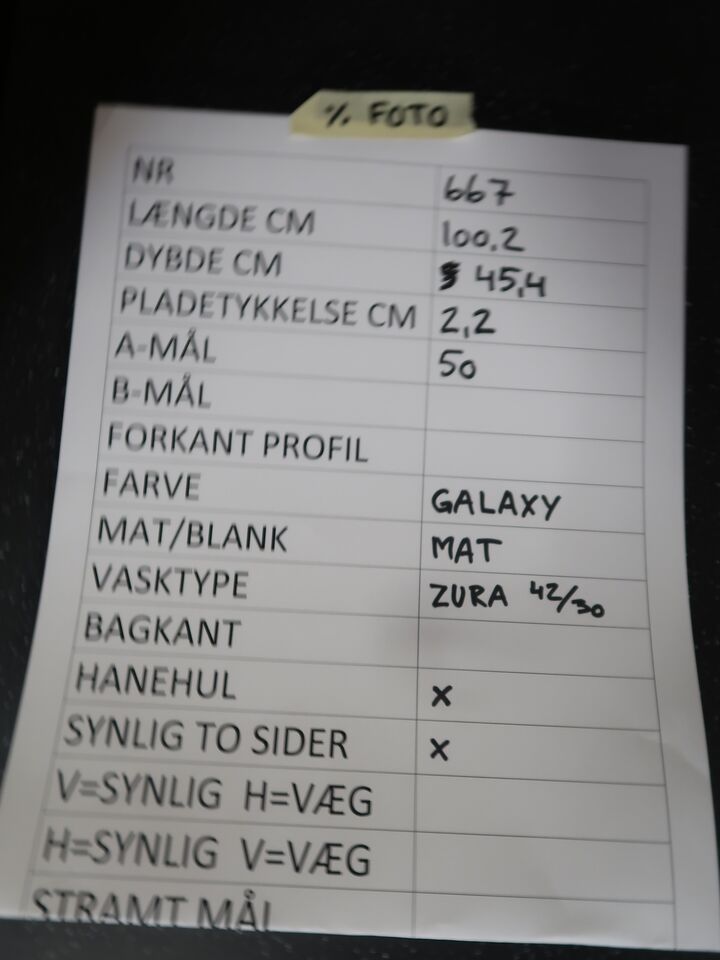 % FOTO
NR 667
LÆNGDE CM 100,2
DYBDE CM 45,4
PLADETYKKELSE CM 2,2
A-MÅL 50
B-MÅL
FORKANT PROFIL
FARVE GALAXY
MAT/BLANK MAT
VASKTYPE ZURA 42/30
BAGKANT
HANEHUL X
SYNLIG TO SIDER X
V=SYNLIG H=VÆG
H=SYNLIG V=VÆG
STRAMT MÅL